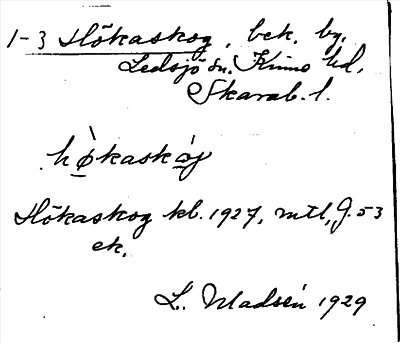 1-3 Hökaskog, bek. by,
Ledsjö sn. Kinne hd.
Skarab. l.
hø̀kaskoj
Hökaskog kb. 1927, mtl, J. 53
ek.
L. Madsén 1929